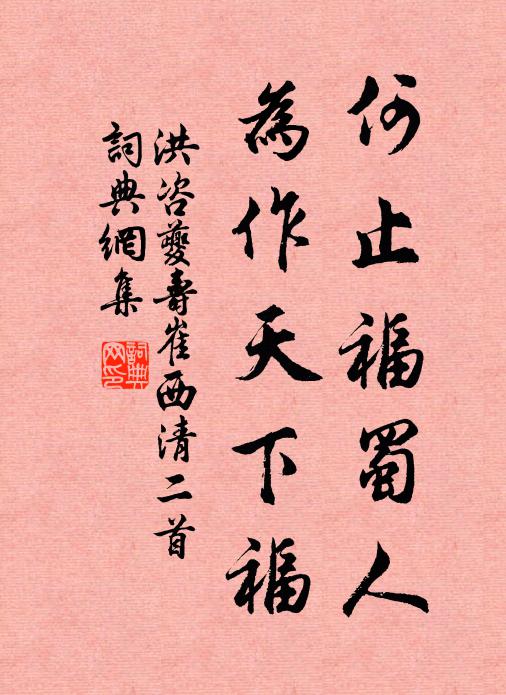 何止福蜀人
為作天下福
洪咨夔壽崔西清二首
詞典網集
詞典網印